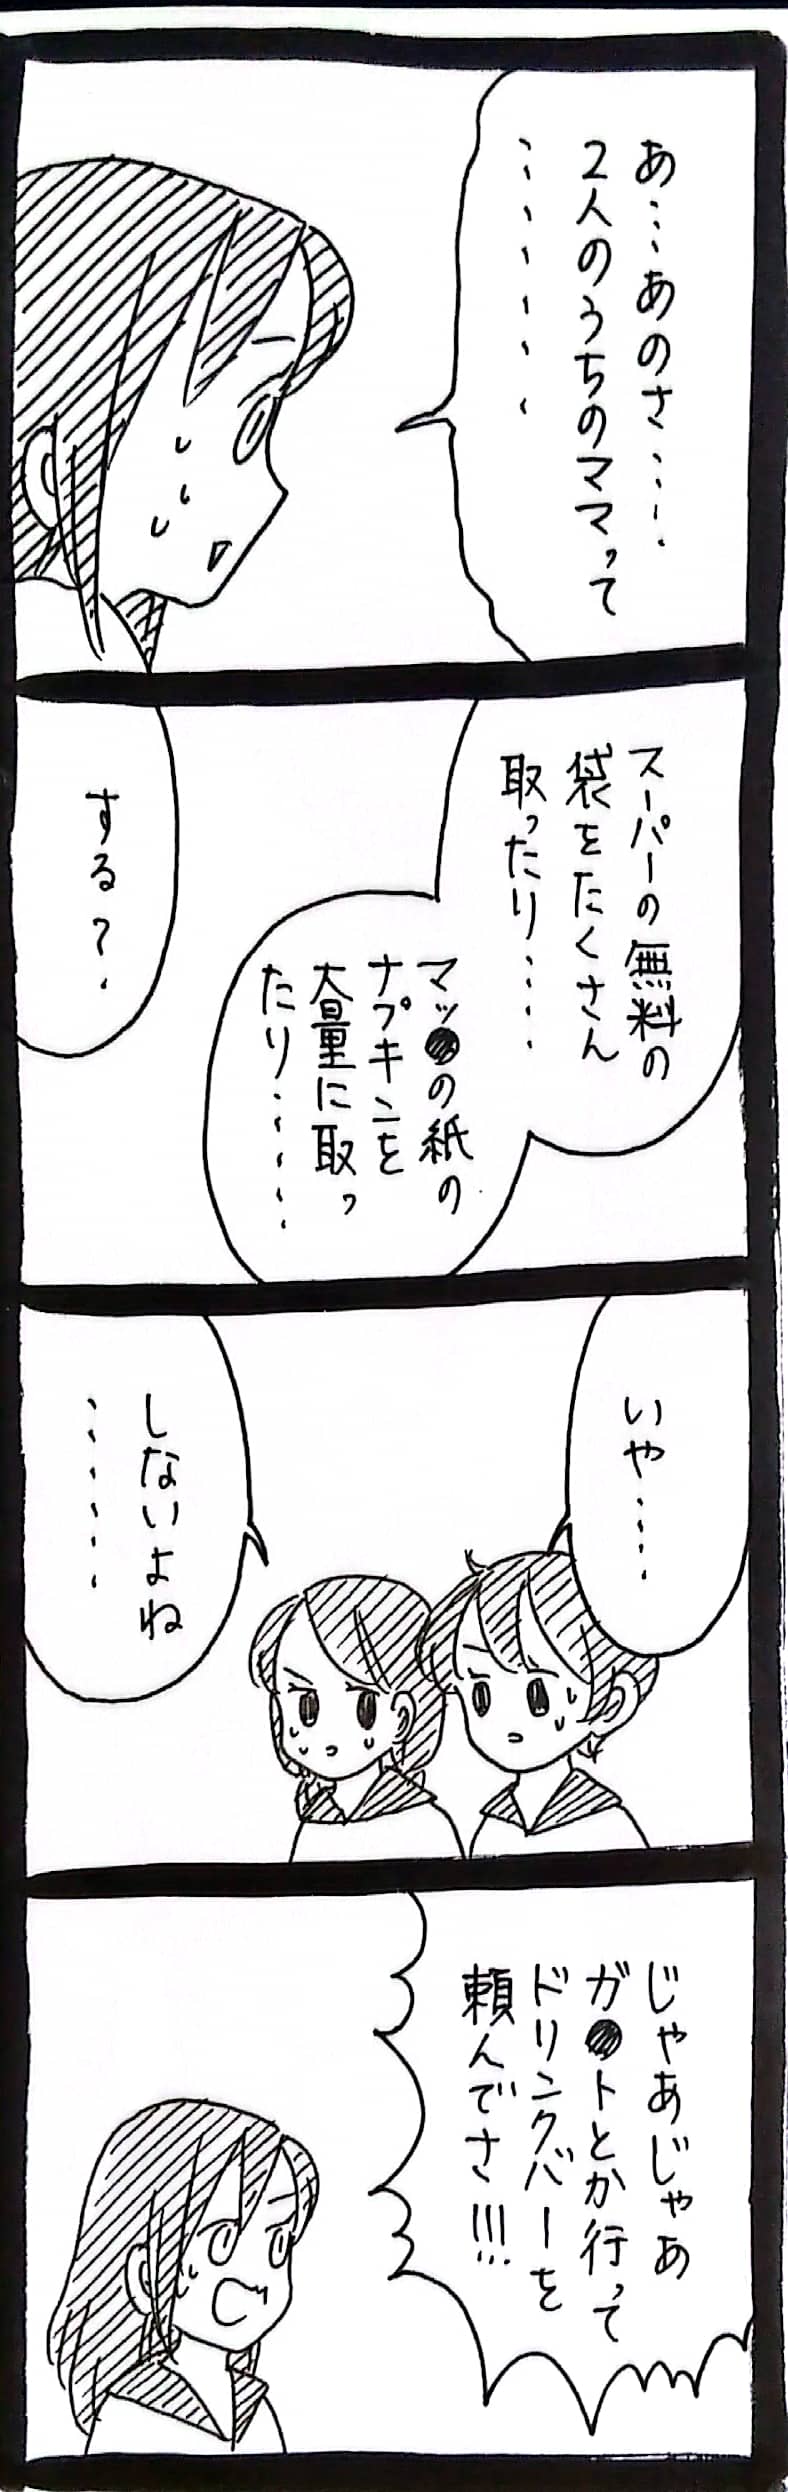 あ…あのさ…．
2人のうちのママって
………
スーパーの無料の
袋をたくさん
取ったり……
マッ●の紙の
ナプキンを
大量に取っ
たり……
する？
いや……
しないよね
………
じゃあじゃあ
ガ●トとか行って
ドリンクバーを
頼んでさ!!!